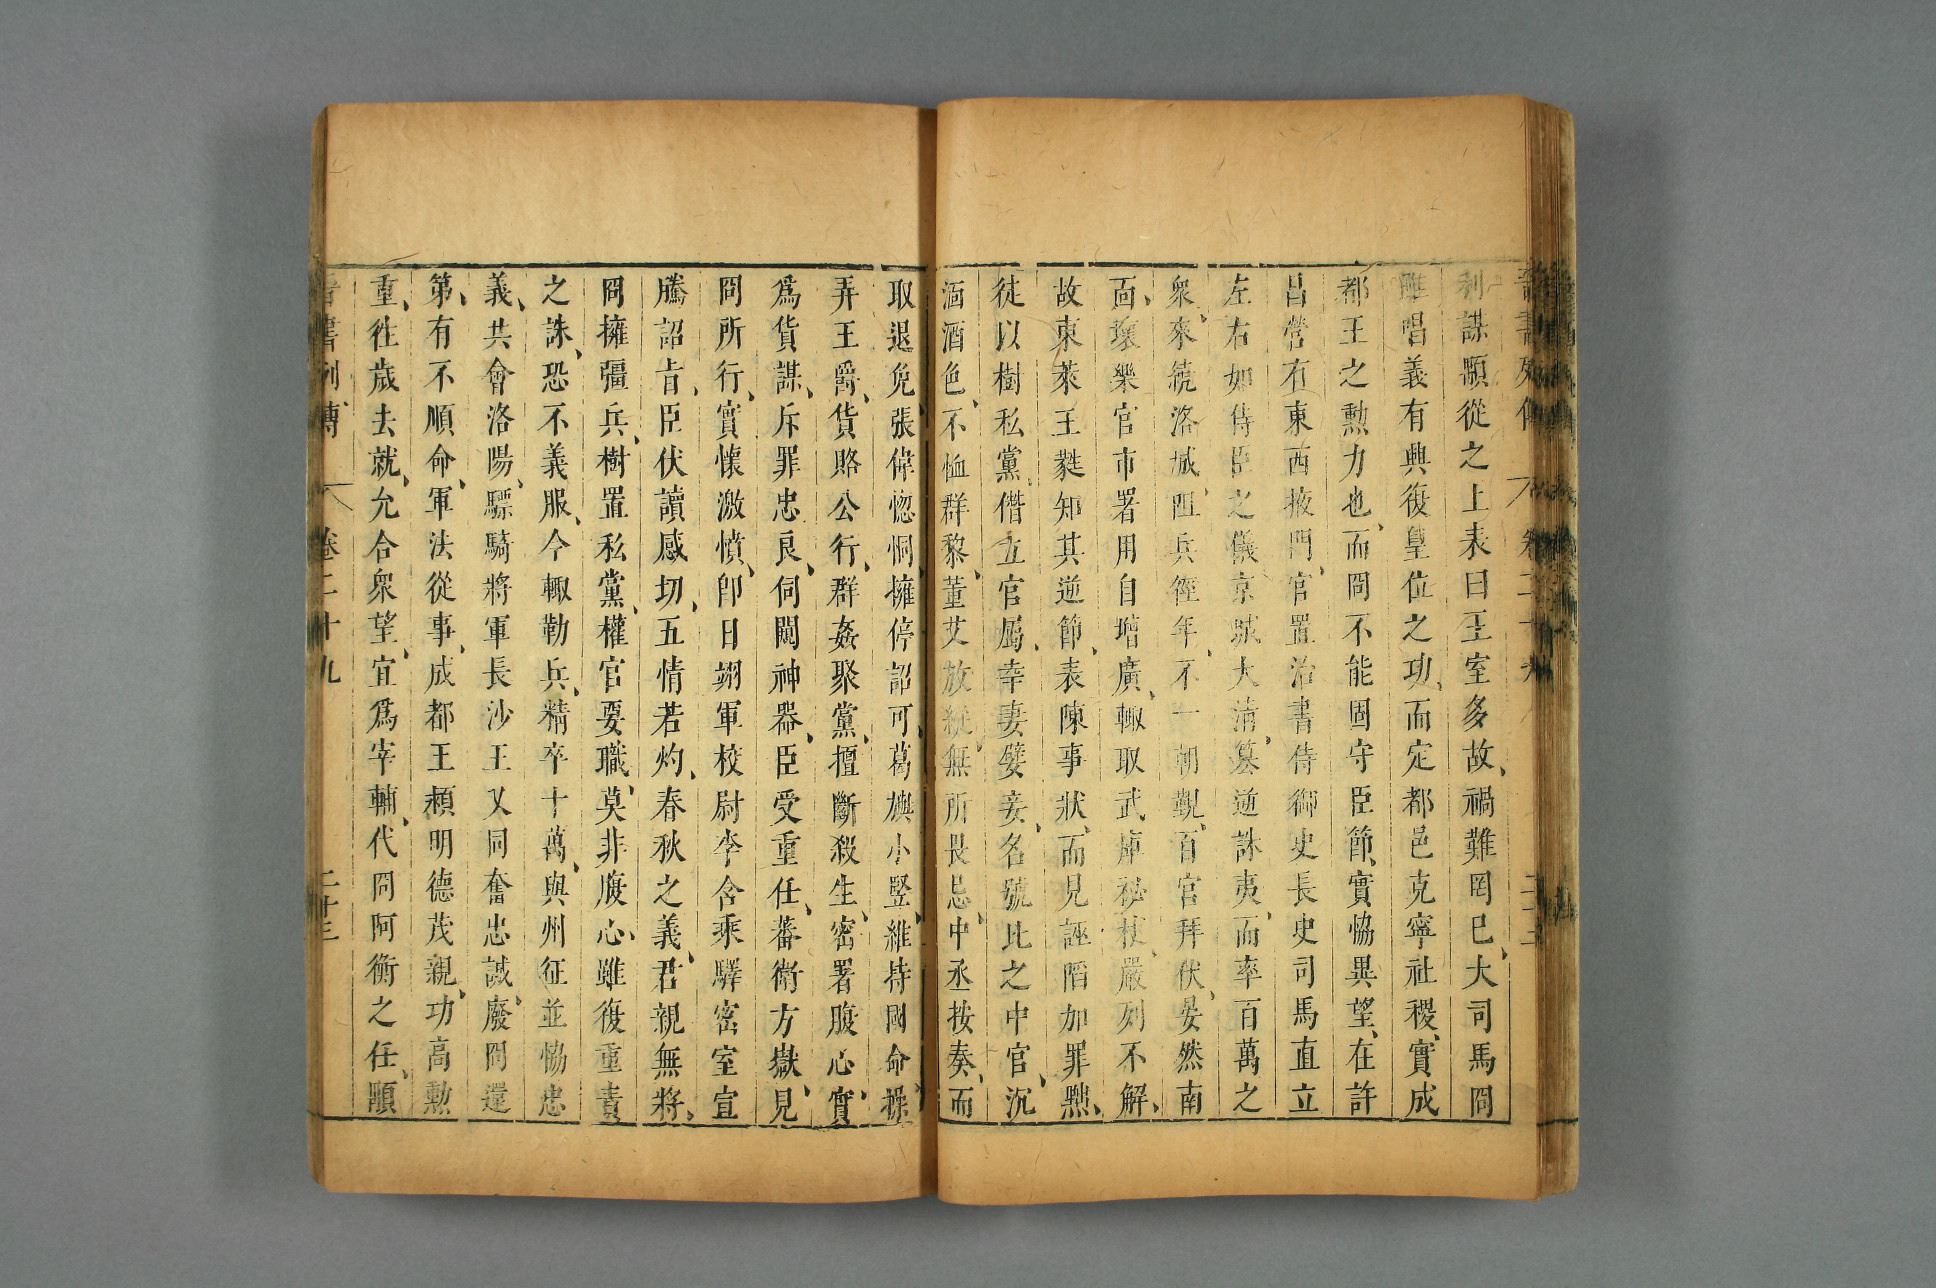 利謀顒從之上表曰王室多故禍難罔已大司馬冏
雖唱義有興復皇位之功而定都邑克寧社稷實成
都王之勲力也而冏不能固守臣節實恊異望在許
昌營有東西掖門官置治書侍御史長史司馬直立
左右如侍臣之儀京城大清簒逆誅夷而率百萬之
衆來繞洛城阻兵徑年不一朝覲百官拜伏晏然南
面壞樂官市署用自增廣輙取武庫秘杖嚴列不解
故東萊王蕤知其逆節表陳事狀而見誣陷加罪黜
徙以樹私黨僭立官屬幸妻嬖妾名號比之中官沉
湎酒色不恤群黎董艾放縱無所畏忌中丞按奏而
取退免張偉惚恫擁停詔可葛旟小豎維持國命操
弄王爵貨賂公行群姦聚黨擅斷殺生密署腹心實
爲貨謀斥罪忠良伺闚神器臣受重任蕃衛方嶽見
冏所行實懷激憤卽日翊軍校尉李含乘驛密室宣
騰詔旨臣伏讀感切五情若灼春秋之義君親無將
冏擁彊兵樹置私黨權官要職莫非腹心雖復重責
之誅恐不義服今輙勒兵精卒十萬與州征並恊忠
義共會洛陽驃騎將軍長沙王乂同奮忠誠廢冏還
第有不順命軍法從事成都王穎明德茂親功高勲
重徃歲去就允合衆望宜爲宰輔代冏阿衡之任顒
晋書列傳 卷二十九 二十三